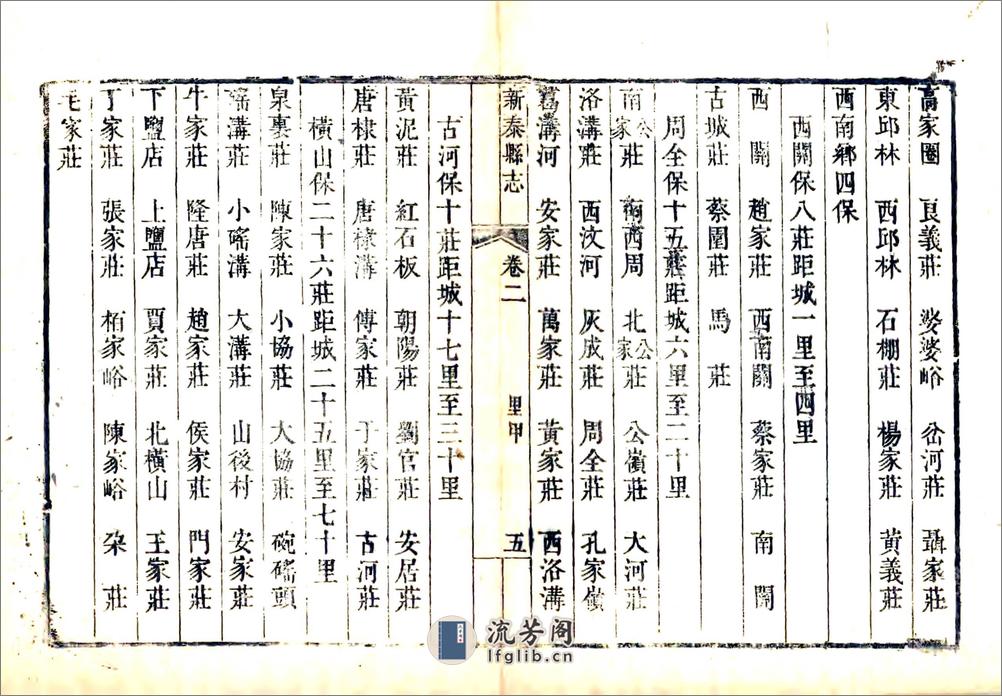 高家圈　良義莊　婆婆峪　岔河莊　聶家莊
東邱林　西邱林　石棚莊　楊家莊　黃義莊
西南鄉四保
西關保八莊距城一里至四里
西關　趙家莊　西南關　蔡家莊　南關
古城莊　蔡圍莊　馬莊
周全保十五莊距城六里至二十里
南公家莊　南西周　北公家莊　公嶺莊　大河莊
洛溝莊　西汶河　灰成莊　周全莊　孔家嶺
葛溝河　安家莊　萬家莊　黃家莊　西洛溝
新泰縣志　卷二　里甲　五
古河保十莊距城十七里至三十里
黃泥莊　紅石板　朝陽莊　劉官莊　安居莊
唐棣莊　唐棣溝　傅家莊　于家莊　古河莊
橫山保二十六莊距城二十五里至七十里
泉裏莊　陳家莊　小協莊　大協莊　碗磘頭
磘溝莊　小磘溝　大溝莊　山後村　安家莊
牛家莊　隆唐莊　趙家莊　侯家莊　門家莊
下鹽店　上鹽店　賈家莊　北橫山　王家莊
丁家莊　張家莊　栢家峪　陳家峪　朶莊
毛家莊
流芳阁
lfglib.cn